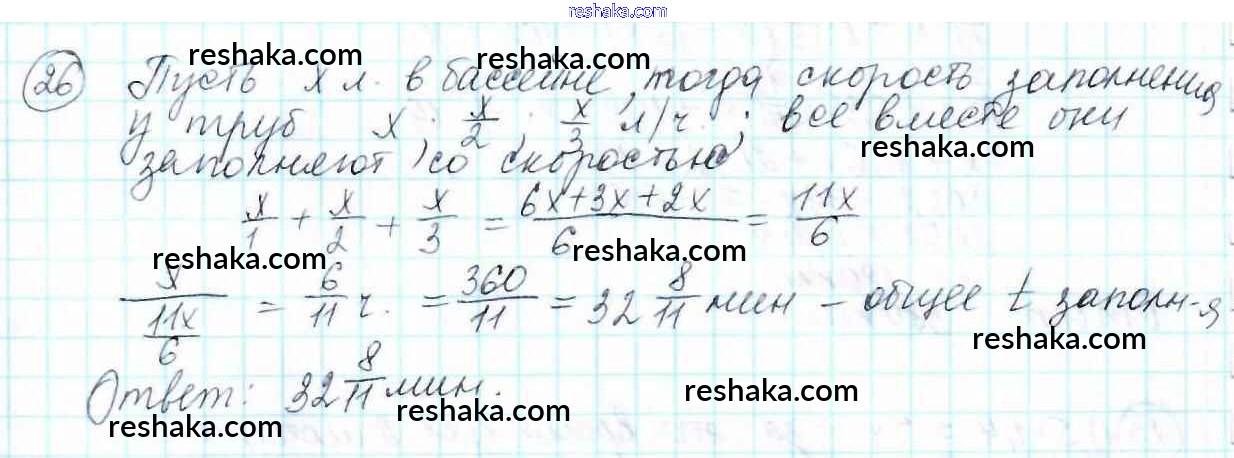 reshaka.com
26 Пусть x л. в бассейне, тогда скорость заполнения
у труб x; x/2; x/3 л/ч.; все вместе они
заполняют со скоростью
x/1 + x/2 + x/3 = (6x+3x+2x)/6 = 11x/6
x/(11x/6) = 6/11 ч. = 360/11 = 32 8/11 мин – общее t заполн-я
Ответ: 32 8/11 мин.
reshaka.com
reshaka.com
reshaka.com
reshaka.com
reshaka.com
reshaka.com
reshaka.com
reshaka.com
reshaka.com